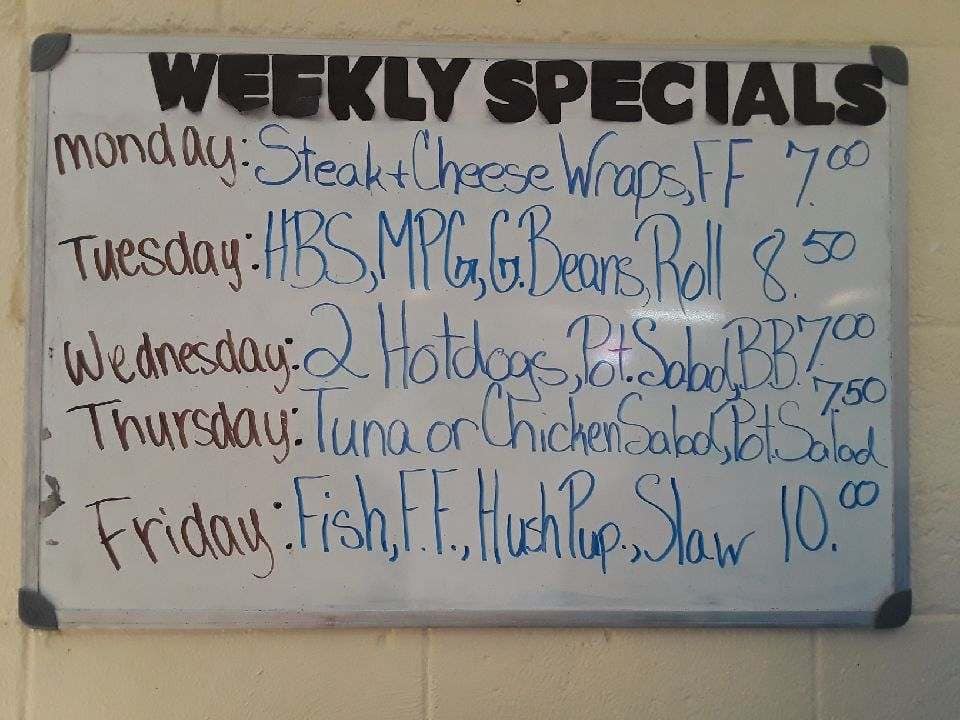 WEEKLY SPECIALS
monday: Steak + Cheese Wraps, FF 7.00
Tuesday: HBS, MPG, G. Beans, Roll 8.50
Wednesday: 2 Hotdogs, Pot. Salad, BB. 7.00
Thursday: Tuna or Chicken Salad, Pot. Salad 7.50
Friday: Fish, F.F., Hush Pup., Slaw 10.00